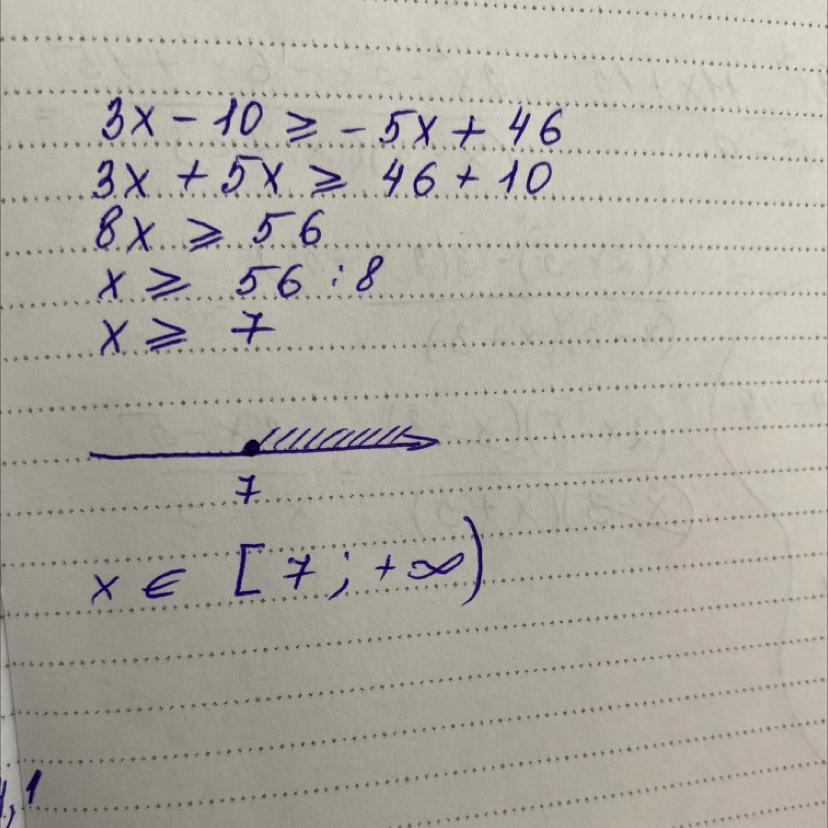 3x - 10 ⩾ - 5x + 46
3x + 5x ⩾ 46 + 10
8x ⩾ 56
x ⩾ 56 : 8
x ⩾ 7
7
x ∈ [7; +∞)